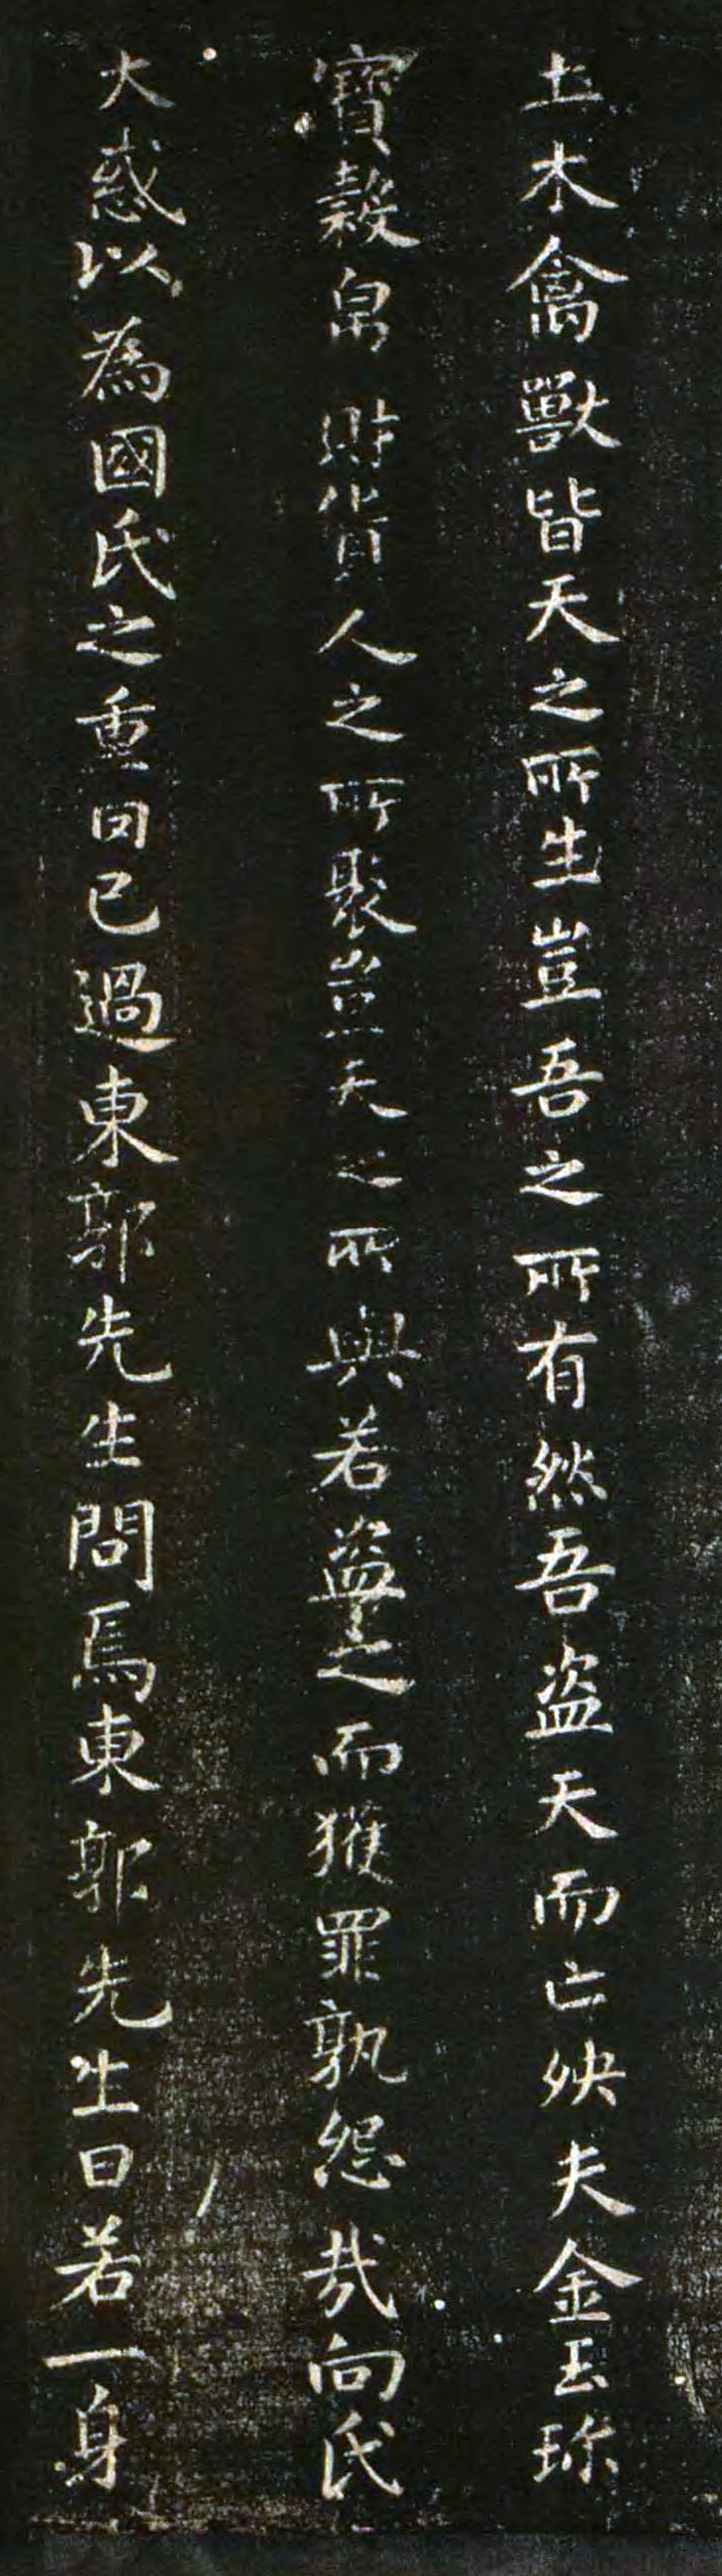 土木禽獸皆天之所生豈吾之所有然吾盜天而亡殃夫金玉珎
寶穀帛財貨人之所聚豈天之所與若盜之而獲罪孰怨哉向氏
大惑以為國氏之重囙已過東郭先生問焉東郭先生曰若一身